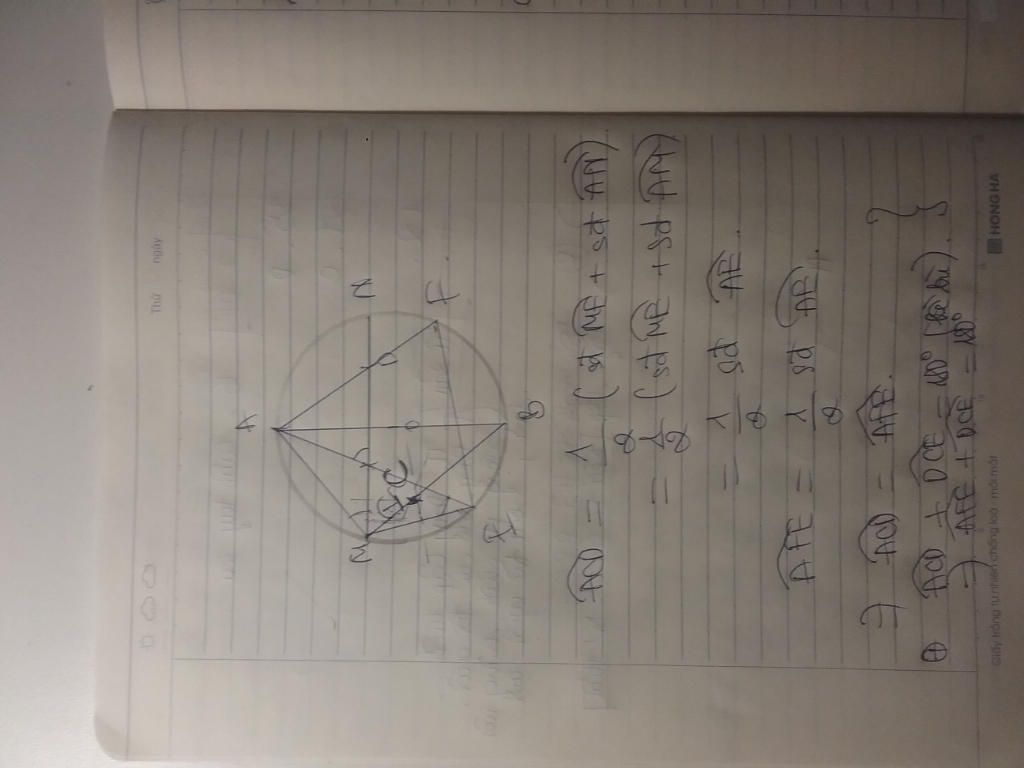 Thứ
ngày
A
M
N
O
D
C
E
F
B
ACD = 1/2 (sđ ME + sđ AN)
= 1/2 (sđ ME + sđ AM)
= 1/2 sđ AE.
AFE = 1/2 sđ AE.
=> ACD = AFE.
⊕ ACD + DCE = 180° (kề bù).
=> AFE + DCE = 180°
Giấy trắng tự nhiên chống loá mỏi mắt
HONG HA